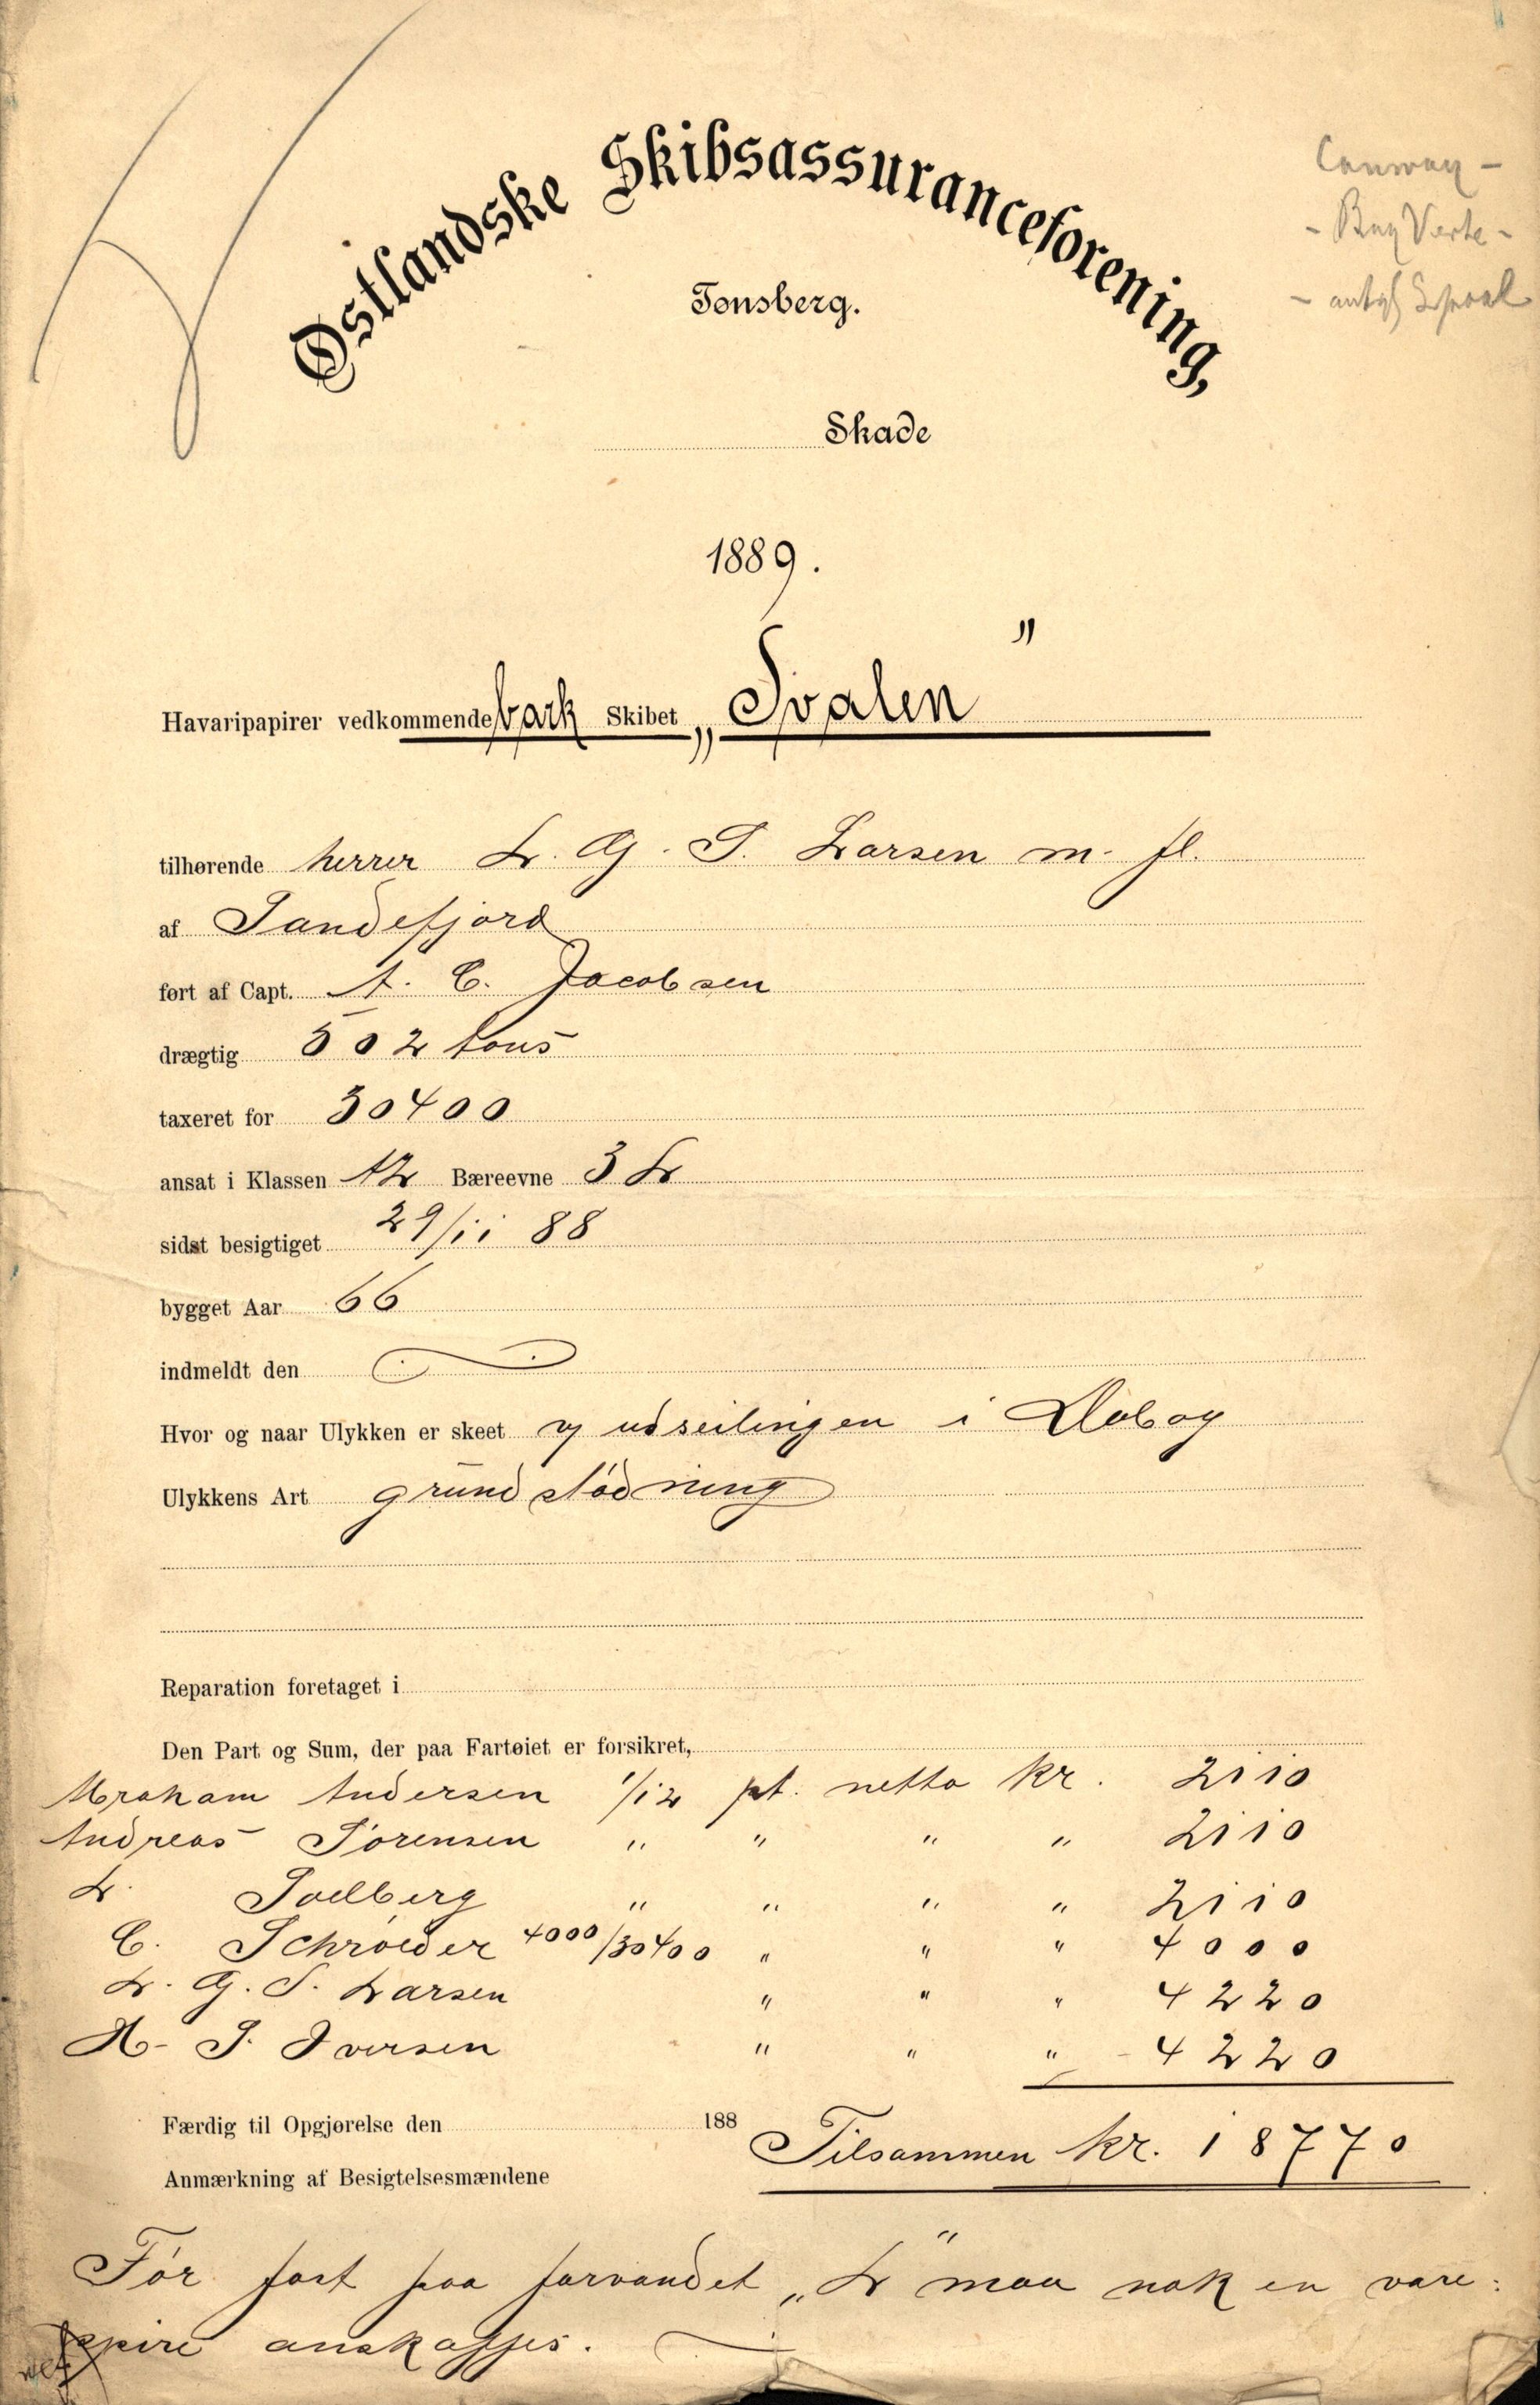 Østlandske Skibsassuranceforening,
Tønsberg.
Conway -
- Bay Verte -
Skade
1889.
Havaripapirer vedkommende bark Skibet „Svalen"
tilhørende herrer L. G. S. Larsen m. fl.
af Sandefjord
ført af Capt. A. C. Jacobsen
drægtig 502 tons
taxeret for 30400
ansat i Klassen A2 Bæreevne 3 L
sidst besigtiget 29/11 88
bygget Aar 66
indmeldt den
Hvor og naar Ulykken er skeet udseilingen i
Ulykkens Art grundstødning
Reparation foretaget i
Den Part og Sum, der paa Fartøiet er forsikret,
Abraham Andersen 1/12 pt. netto Kr. 2110
Andreas Sørensen " " " " 2110
L. Soelberg " " " " 2110
C. Schrøeder 4000/30400 " " " 4000
L. G. S. Larsen " " " 4220
H. S. Iversen " " " 4220
Færdig til Opgjørelse den 188
Tilsammen Kr. 18770
Anmærkning af Besigtelsesmændene
Før fart paa farvandet „L" maa nok en vare-
spire anskaffes.